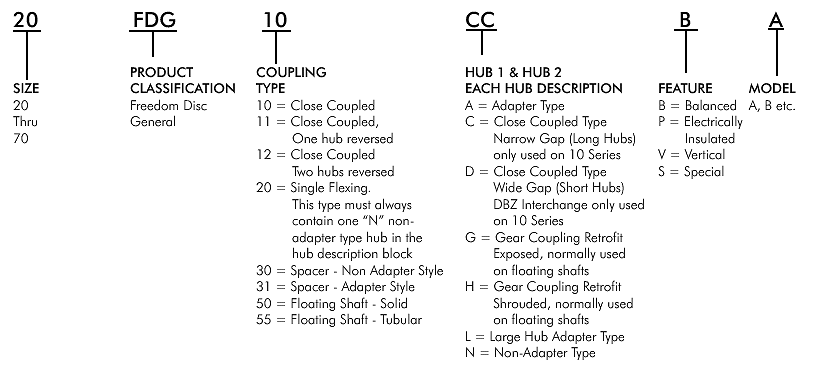 20 FDG 10 CC B A
SIZE
20
Thru
70
PRODUCT
CLASSIFICATION
Freedom Disc
General
COUPLING
TYPE
10 = Close Coupled
11 = Close Coupled,
One hub reversed
12 = Close Coupled
Two hubs reversed
20 = Single Flexing.
This type must always
contain one “N” non-
adapter type hub in the
hub description block
30 = Spacer - Non Adapter Style
31 = Spacer - Adapter Style
50 = Floating Shaft - Solid
55 = Floating Shaft - Tubular
HUB 1 & HUB 2
EACH HUB DESCRIPTION
A = Adapter Type
C = Close Coupled Type
Narrow Gap (Long Hubs)
only used on 10 Series
D = Close Coupled Type
Wide Gap (Short Hubs)
DBZ Interchange only used
on 10 Series
G = Gear Coupling Retrofit
Exposed, normally used
on floating shafts
H = Gear Coupling Retrofit
Shrouded, normally used
on floating shafts
L = Large Hub Adapter Type
N = Non-Adapter Type
FEATURE
B = Balanced
P = Electrically
Insulated
V = Vertical
S = Special
MODEL
A, B etc.